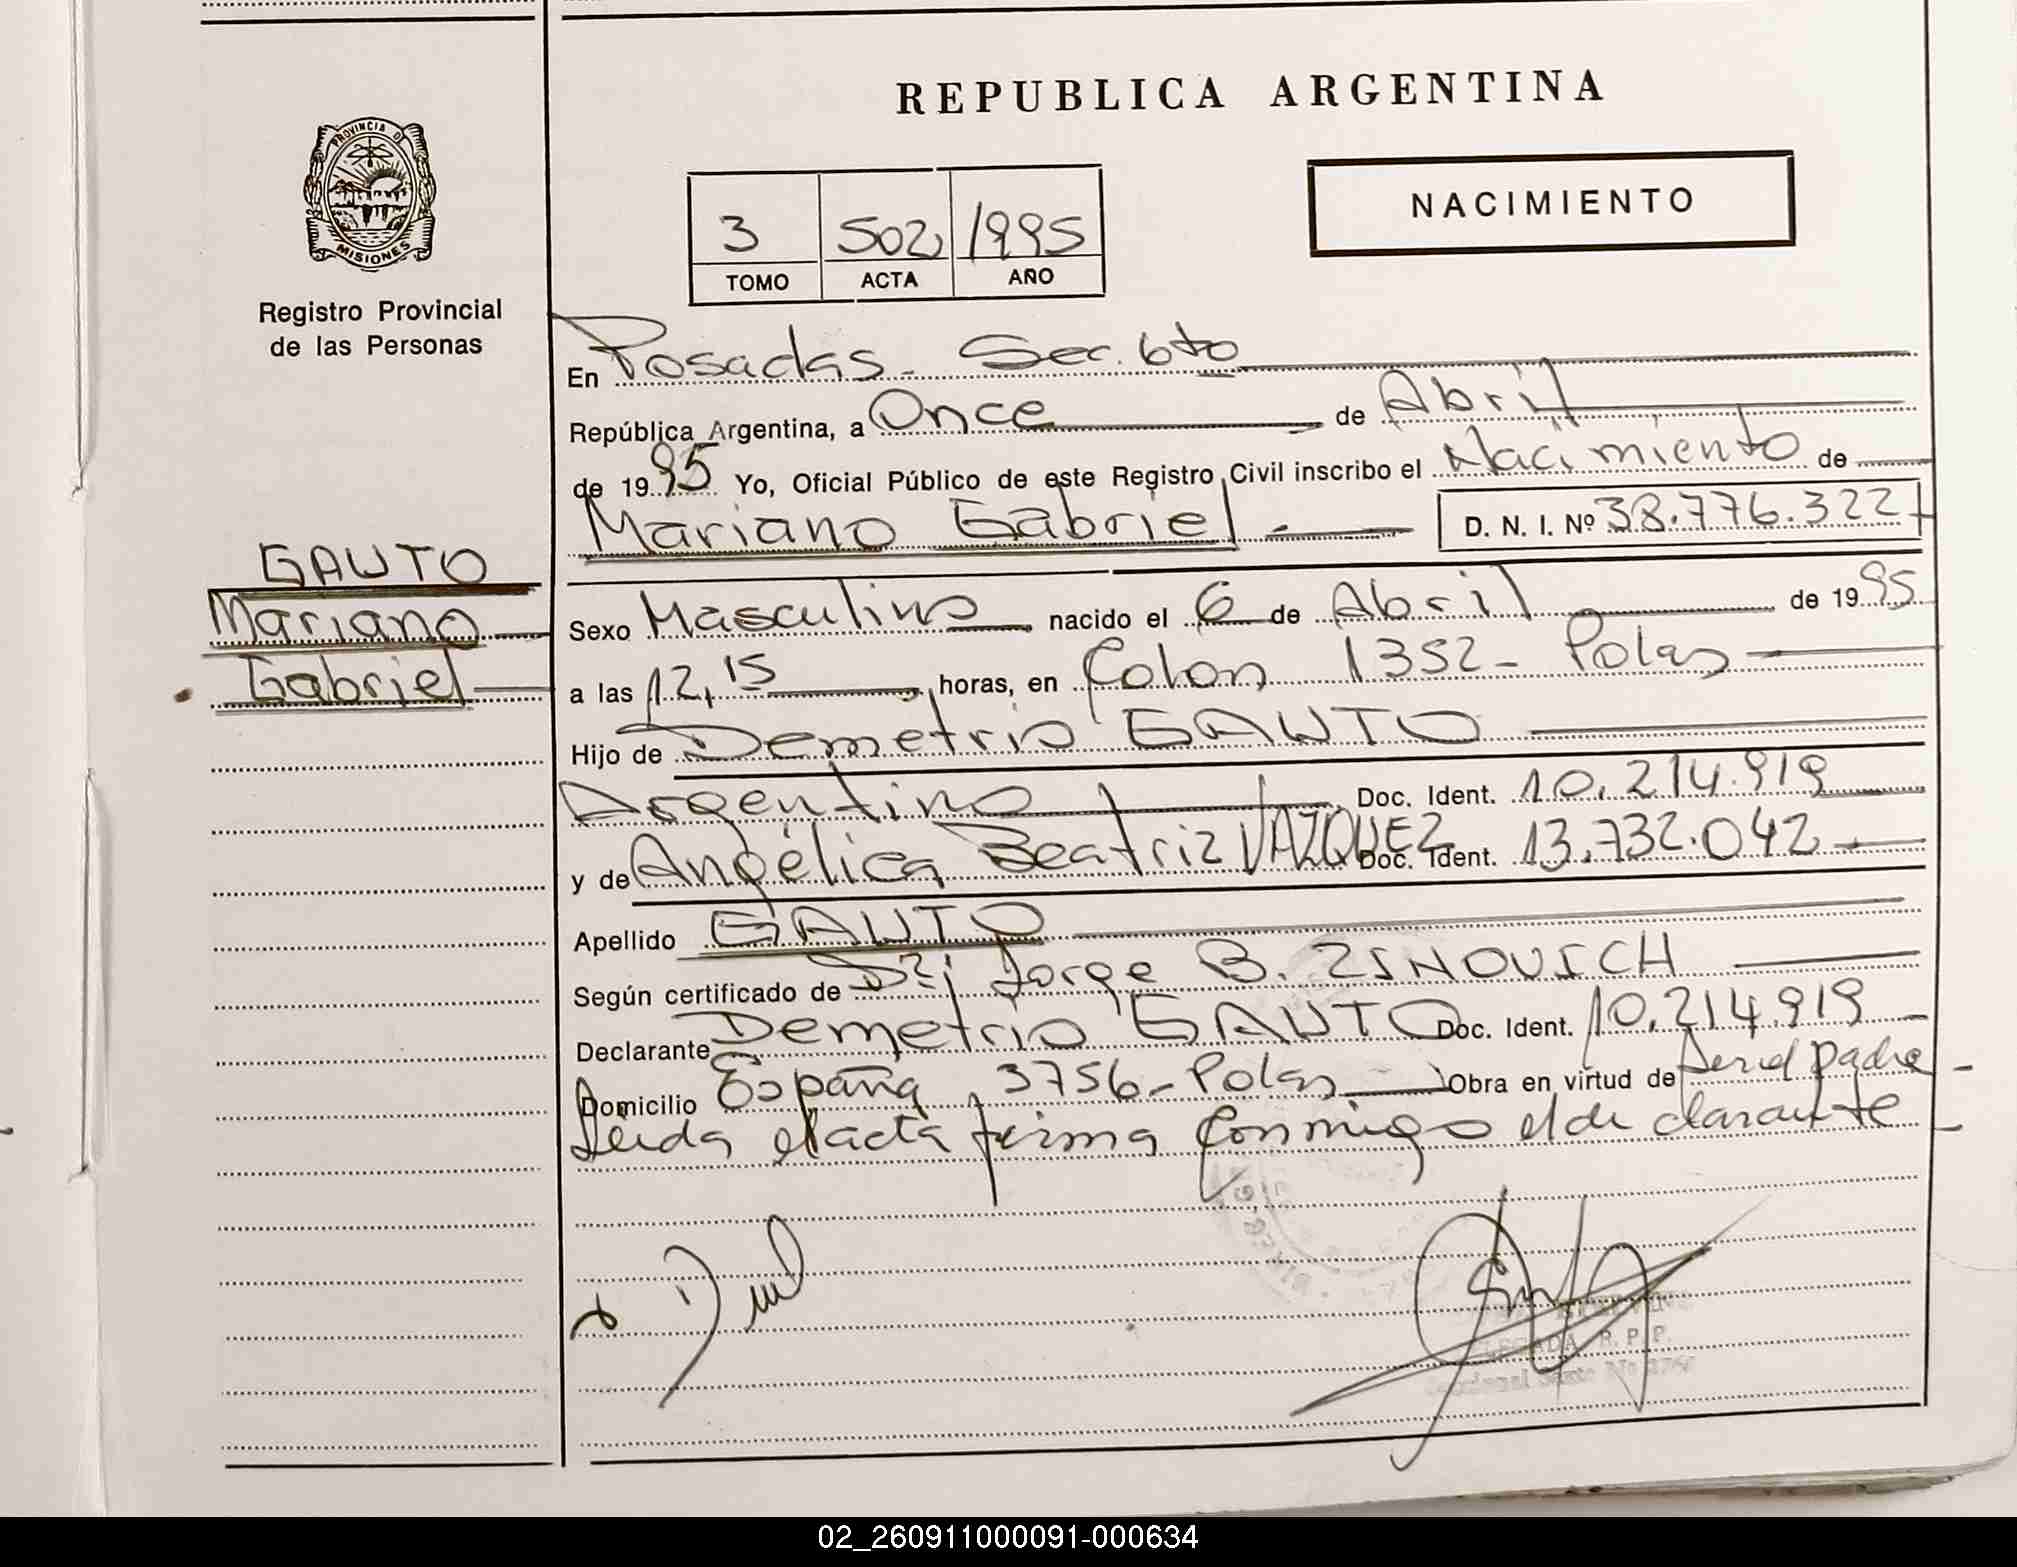 REPUBLICA ARGENTINA
PROVINCIA D
MISIONES
Registro Provincial
de las Personas
NACIMIENTO
3 502 1995
TOMO ACTA AÑO
En Posadas - Sec. 6to
República Argentina, a Once de Abril
de 1995 Yo, Oficial Público de este Registro Civil inscribo el Nacimiento de
Mariano Gabriel D. N. I. Nº 38.776.322
GAUTO
Mariano
Gabriel
Sexo Masculino nacido el 6 de Abril de 1995
a las 12,15 horas, en Colon 1352 - Pdas
Hijo de Demetrio GAUTO
Argentino Doc. Ident. 10.214.919
y de Angélica Beatriz VAZQUEZ Doc. Ident. 13.732.042
Apellido GAUTO
Según certificado de Dr. Jorge B. ZINOVICH
Declarante Demetrio GAUTO Doc. Ident. 10.214.919
Domicilio España 3756 - Pdas Obra en virtud de Ser el padre
Leida el acta firma conmigo el declarante
R. P. P.
02_260911000091-000634